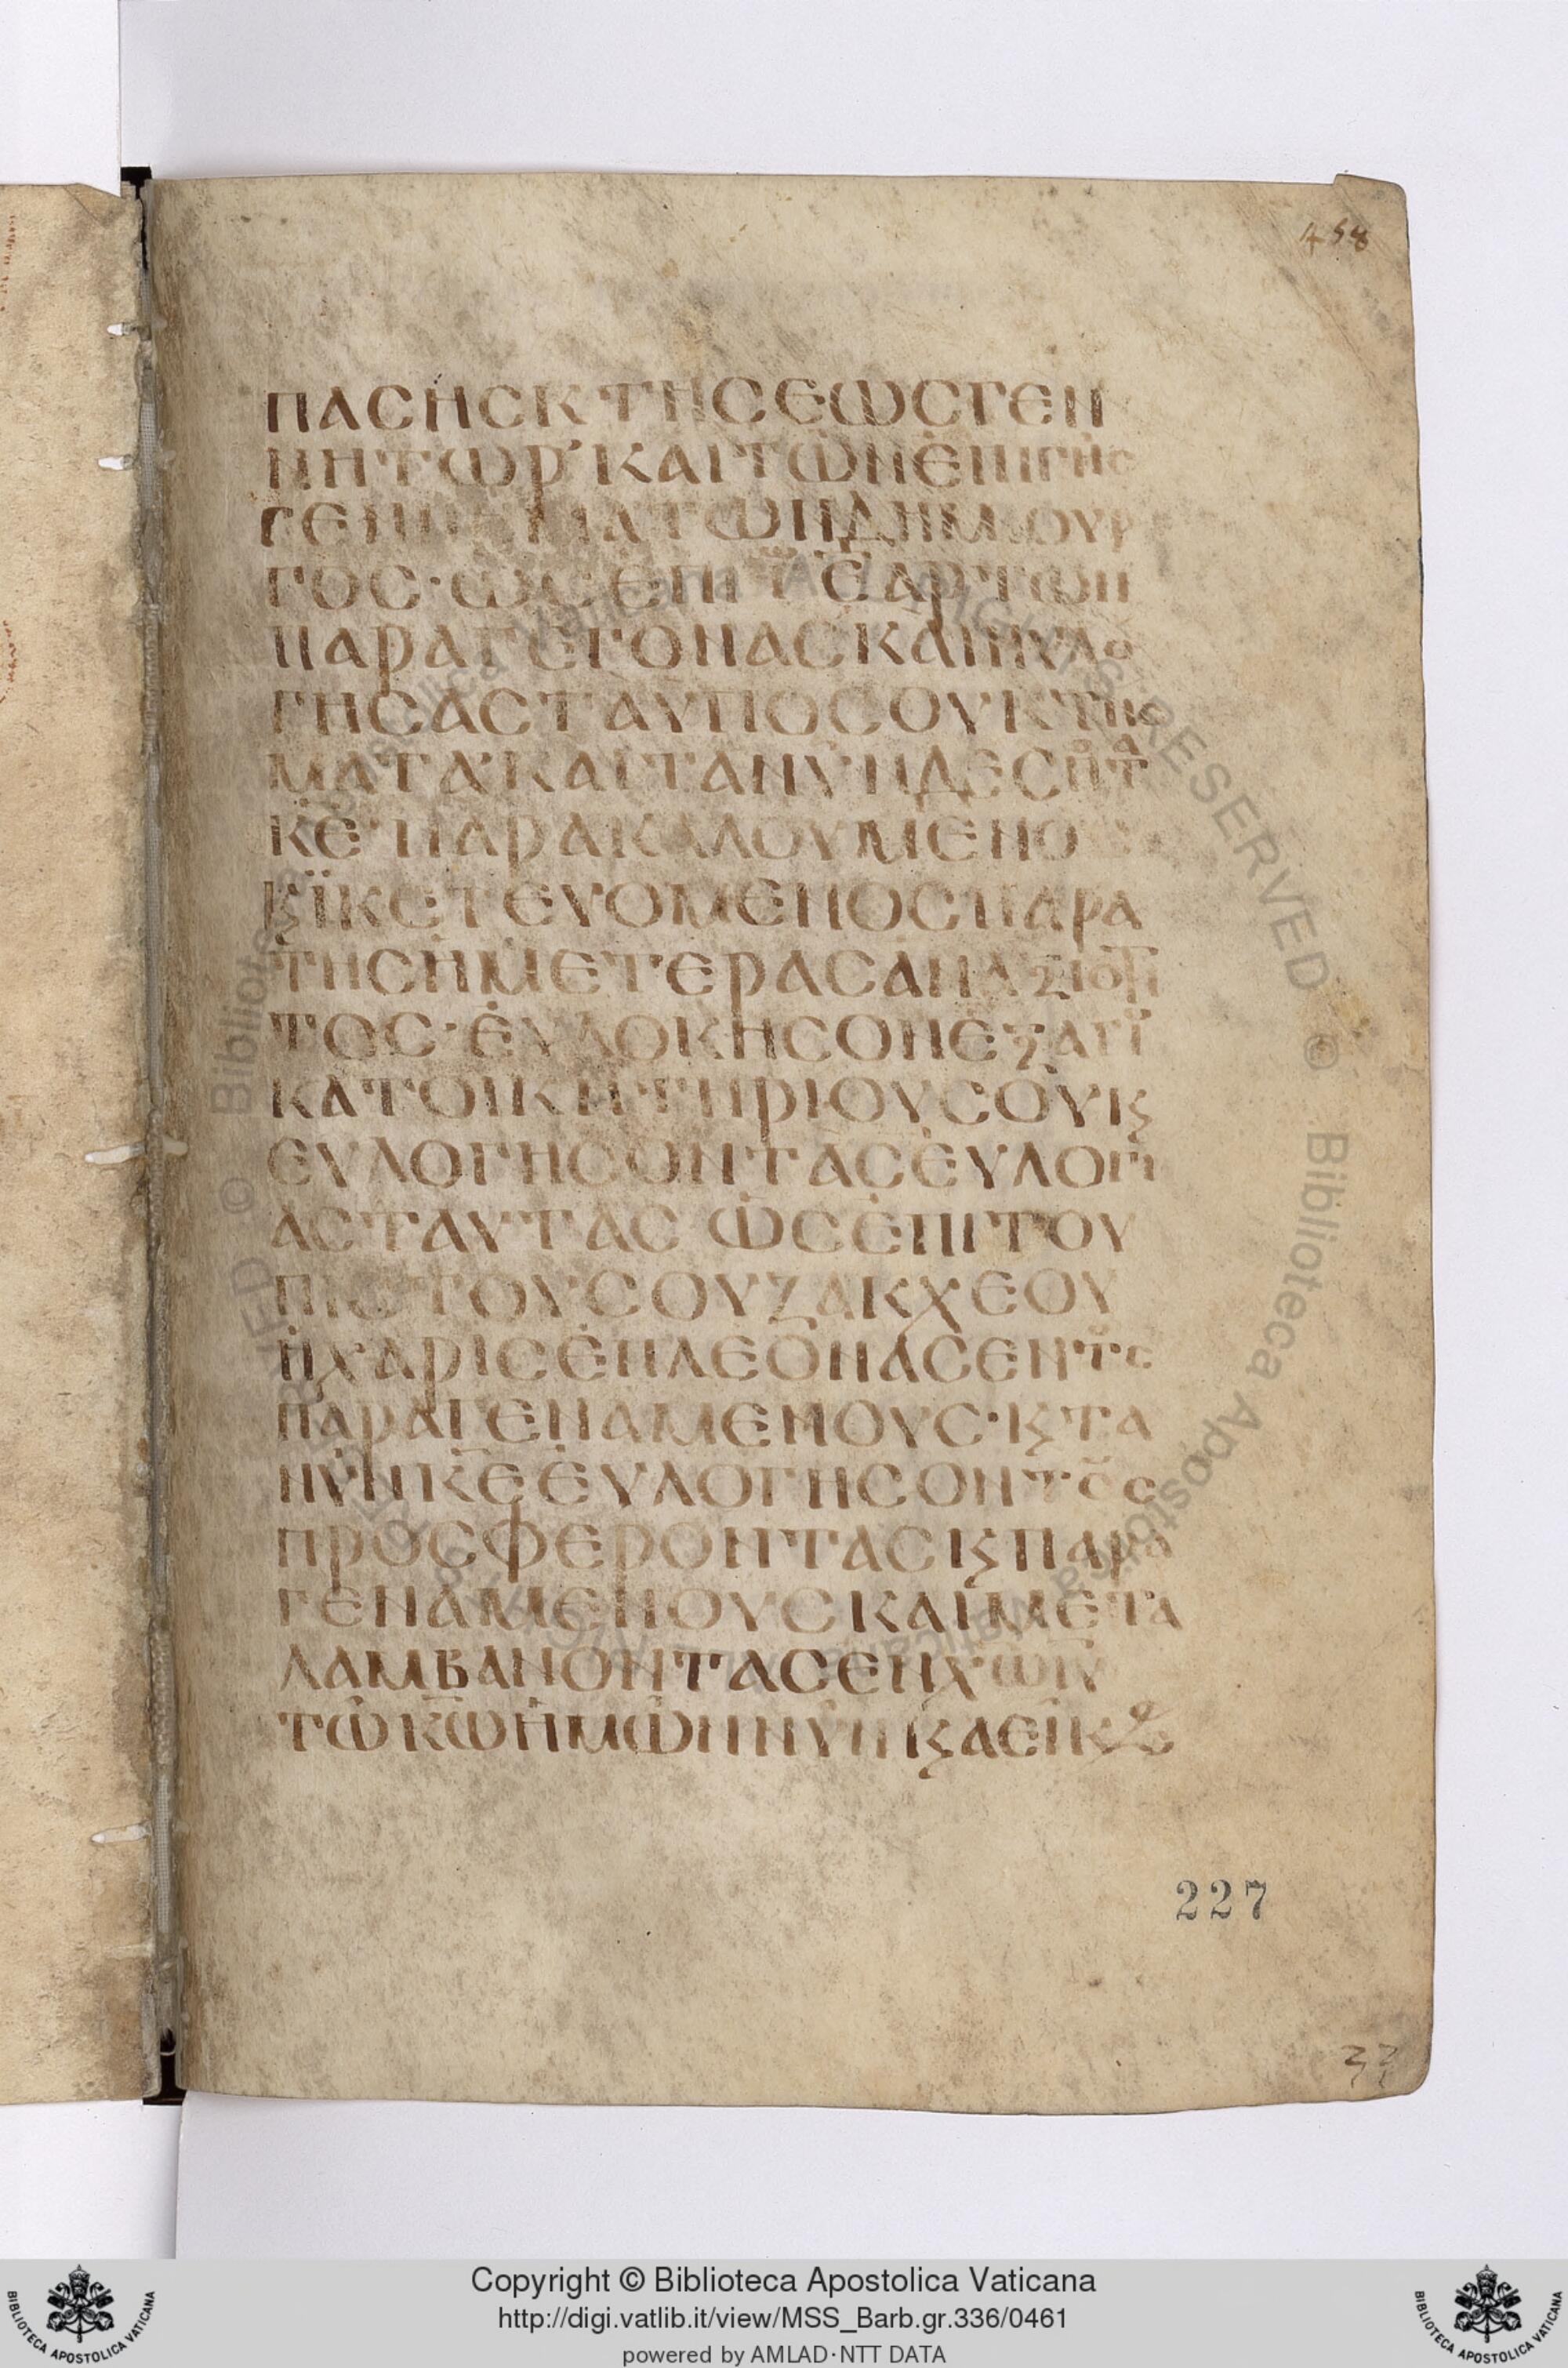 458
ΠΑCΗC ΚΤΗCΕΩC ΓΕΝ
ΝΗΤΩΡ ΚΑΙ ΤΩΝ ΕΠΙ ΓΗC
ΔΗΜΙΟΥΡ
ΓΟC · ΩC ΕΠΙ Ε ΑΡΤΩΝ
ΠΑΡΑΓΕΓΟΝΑC ΚΑΙ ΗΥΛΟ
ΓΗCΑC ΤΑ ΥΠΟ CΟΥ ΚΤΗC
ΜΑΤΑ ΚΑΙ ΤΑ ΝΥΝ ΔΕCΠΤΑ
ΚΕ ΠΑΡΑΚΑΛΟΥΜΕΝΟ
Ϗ ΪΚΕΤΕΥΟΜΕΝΟC ΠΑΡΑ
ΤΗC ΗΜΕΤΕΡΑC
ΤΟC · ΕΥΔΟΚΗCΟΝ ΕΞ ΑΓΙ
ΚΑΤΟΙΚΗΤΗΡΙΟΥ CΟΥ Ϗ
ΕΥΛΟΓΗCΟΝ ΤΑC ΕΥΛΟΓΙ
ΑC ΤΑΥΤΑC ΩC ΕΠΙ ΤΟΥ
ΠΙCΤΟΥ CΟΥ ΖΑΚΧΕΟΥ
ΗΧΑΡΙC ΕΠΛΕΟΝΑCΕΝ
ΠΑΡΑΓΕΝΑΜΕΝΟΥC · Ϗ ΤΑ
ΝΥΝ ΚΕ ΕΥΛΟΓΗCΟΝ ΤȢC
ΠΡΟCΦΕΡΟΝΤΑC Ϗ ΠΑΡΑ
ΓΕΝΑΜΕΝΟΥC ΚΑΙ ΜΕΤΑ
ΛΑΜΒΑΝΟΝΤΑC ΕΝ ΧΩ ΙΥ
ΤΩ ΚΩ ΗΜΩΝ ΝΥΝ Ϗ ΑΕΙ Κ
227
Copyright © Biblioteca Apostolica Vaticana
http://digi.vatlib.it/view/MSS_Barb.gr.336/0461
powered by AMLAD·NTT DATA
BIBLIOTECA APOSTOLICA VATICANA
BIBLIOTECA APOSTOLICA VATICANA